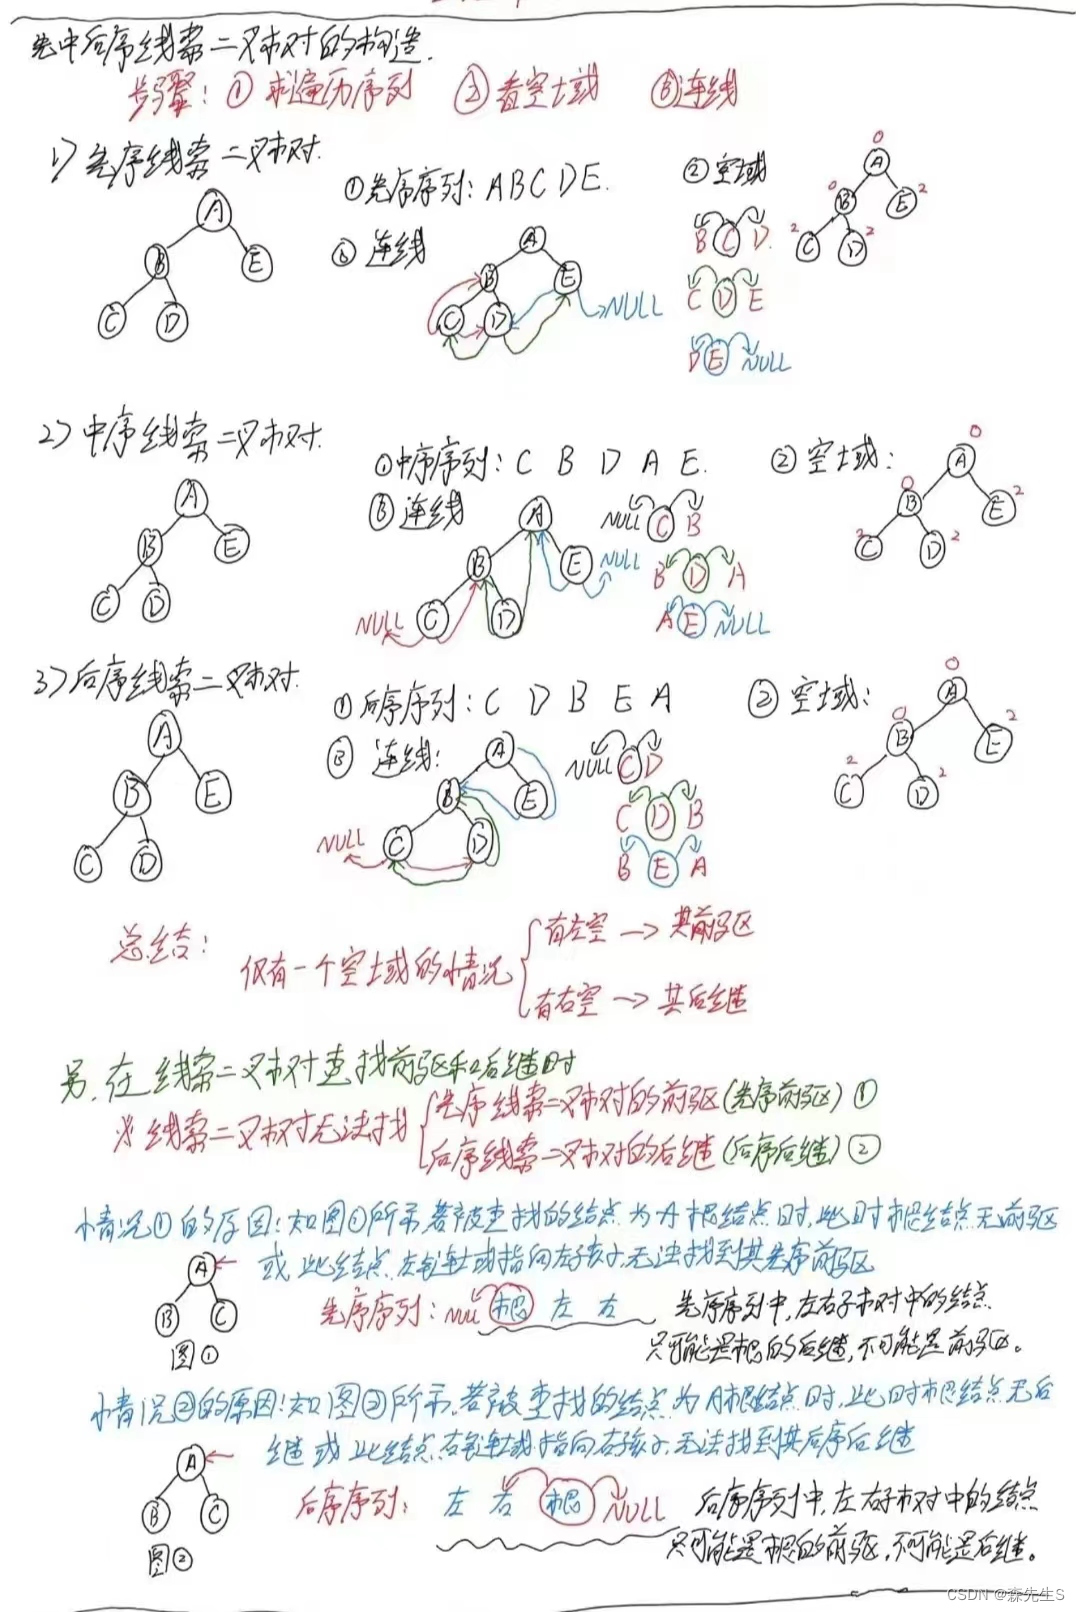 先中后序线索二叉树的构造.
步骤: ① 求遍历序列 ② 看空域 ③ 连线
1) 先序线索二叉树.
① 先序序列: A B C D E.
② 空域
A 0
B 0
E 2
C 2
D 2
A
B
E
C
D
③ 连线
A
B
E
C
D
NULL
B C D
C D E
D E NULL
2) 中序线索二叉树.
① 中序序列: C B D A E.
② 空域:
A 0
B 0
E 2
C 2
D 2
A
B
E
C
D
③ 连线
A
B
E
C
D
NULL
NULL
NULL C B
B D A
A E NULL
3) 后序线索二叉树.
① 后序序列: C D B E A
② 空域:
A 0
B 0
E 2
C 2
D 2
A
B
E
C
D
③ 连线:
A
B
E
C
D
NULL
NULL C D
C D B
B E A
总结:
仅有一个空域的情况
有左空 → 其前驱
有右空 → 其后继
另. 在线索二叉树查找前驱和后继时
※ 线索二叉树无法找
先序线索二叉树的前驱 (先序前驱) ①
后序线索二叉树的后继 (后序后继) ②
情况①的原因: 如图①所示, 若被查找的结点为A根结点时, 此时根结点无前驱
或此结点左链域指向左孩子, 无法找到其先序前驱
A
B
C
图①
先序序列: NULL 根 左 右
先序序列中, 左右子树中的结点
只可能是根的后继, 不可能是前驱。
情况②的原因: 如图②所示, 若被查找的结点为A根结点时, 此时根结点无后
继或此结点右链域指向右孩子, 无法找到其后序后继
A
B
C
图②
后序序列: 左 右 根 NULL
后序序列中, 左右子树中的结点
只可能是根的前驱, 不可能是后继。
CSDN @森先生S